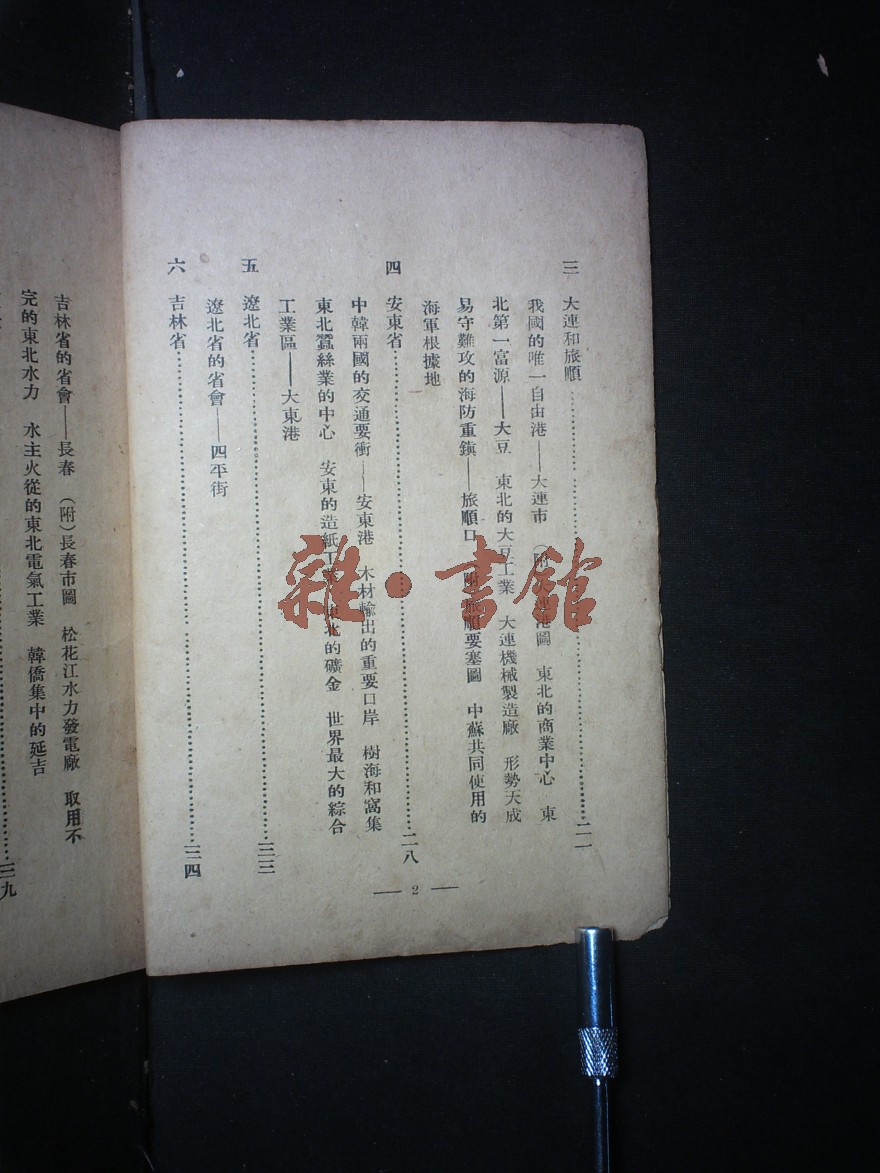 三　大連和旅順……………………二一
我國的唯一自由港——大連市　（附）大連港圖　東北的商業中心　東
北第一富源——大豆　東北的大豆工業　大連機械製造廠　形勢天成
易守難攻的海防重鎮——旅順口　附　旅順要塞圖　中蘇共同使用的
海軍根據地
四　安東省……………………二八
中韓兩國的交通要衝——安東港　木材輸出的重要口岸　樹海和窩集
東北蠶絲業的中心　安東的造紙工業　東北的礦金　世界最大的綜合
工業區——大東港
五　遼北省……………………三三
遼北省的省會——四平街
六　吉林省……………………三四
— 2 —
吉林省的省會——長春　（附）長春市圖　松花江水力發電廠　取用不
完的東北水力　水主火從的東北電氣工業　韓僑集中的延吉
……………………三九
雜·書館